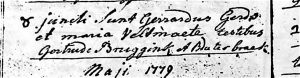 8 juncti Sunt Gerrardus Gerdes
et maria Veltmaete testibus
Gertrudt Bruggink A Baterbraek
Maji 1779